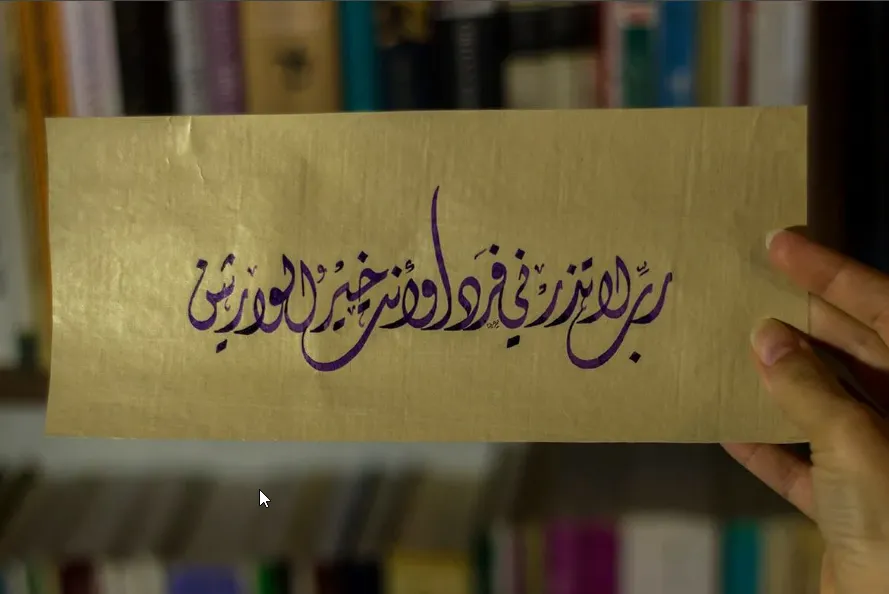 ربِّ لا تذرني فردا وأنت خير الوارثين